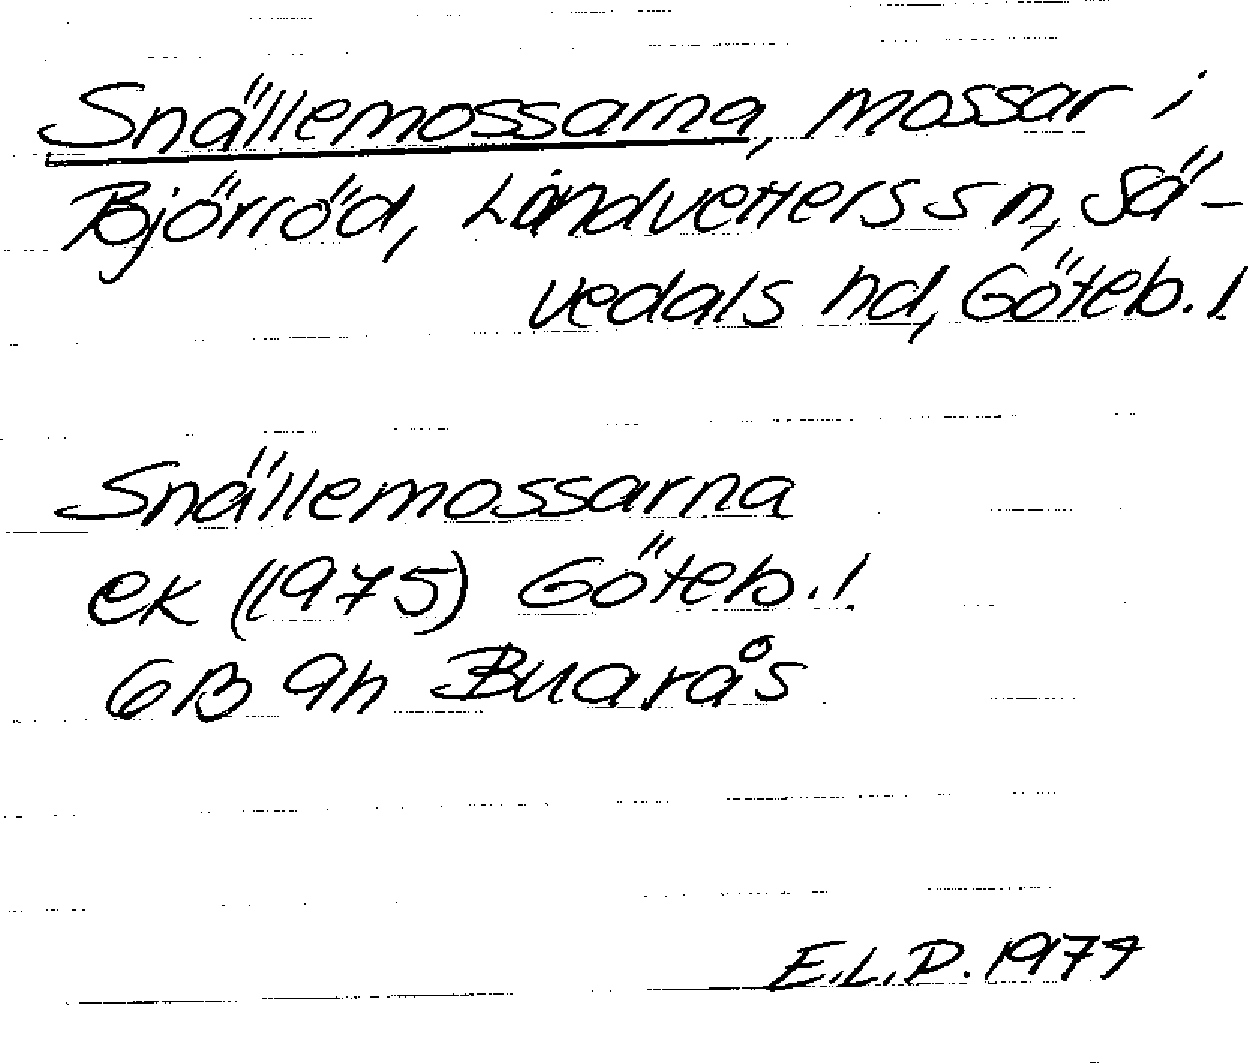 Snällemossarna, mossar i
Björröd, Landvetters sn, Sä-
vedals hd, Göteb. l
Snällemossarna
ek (1975) Göteb. l.
6B 9h Buarås
E.L.D. 1977